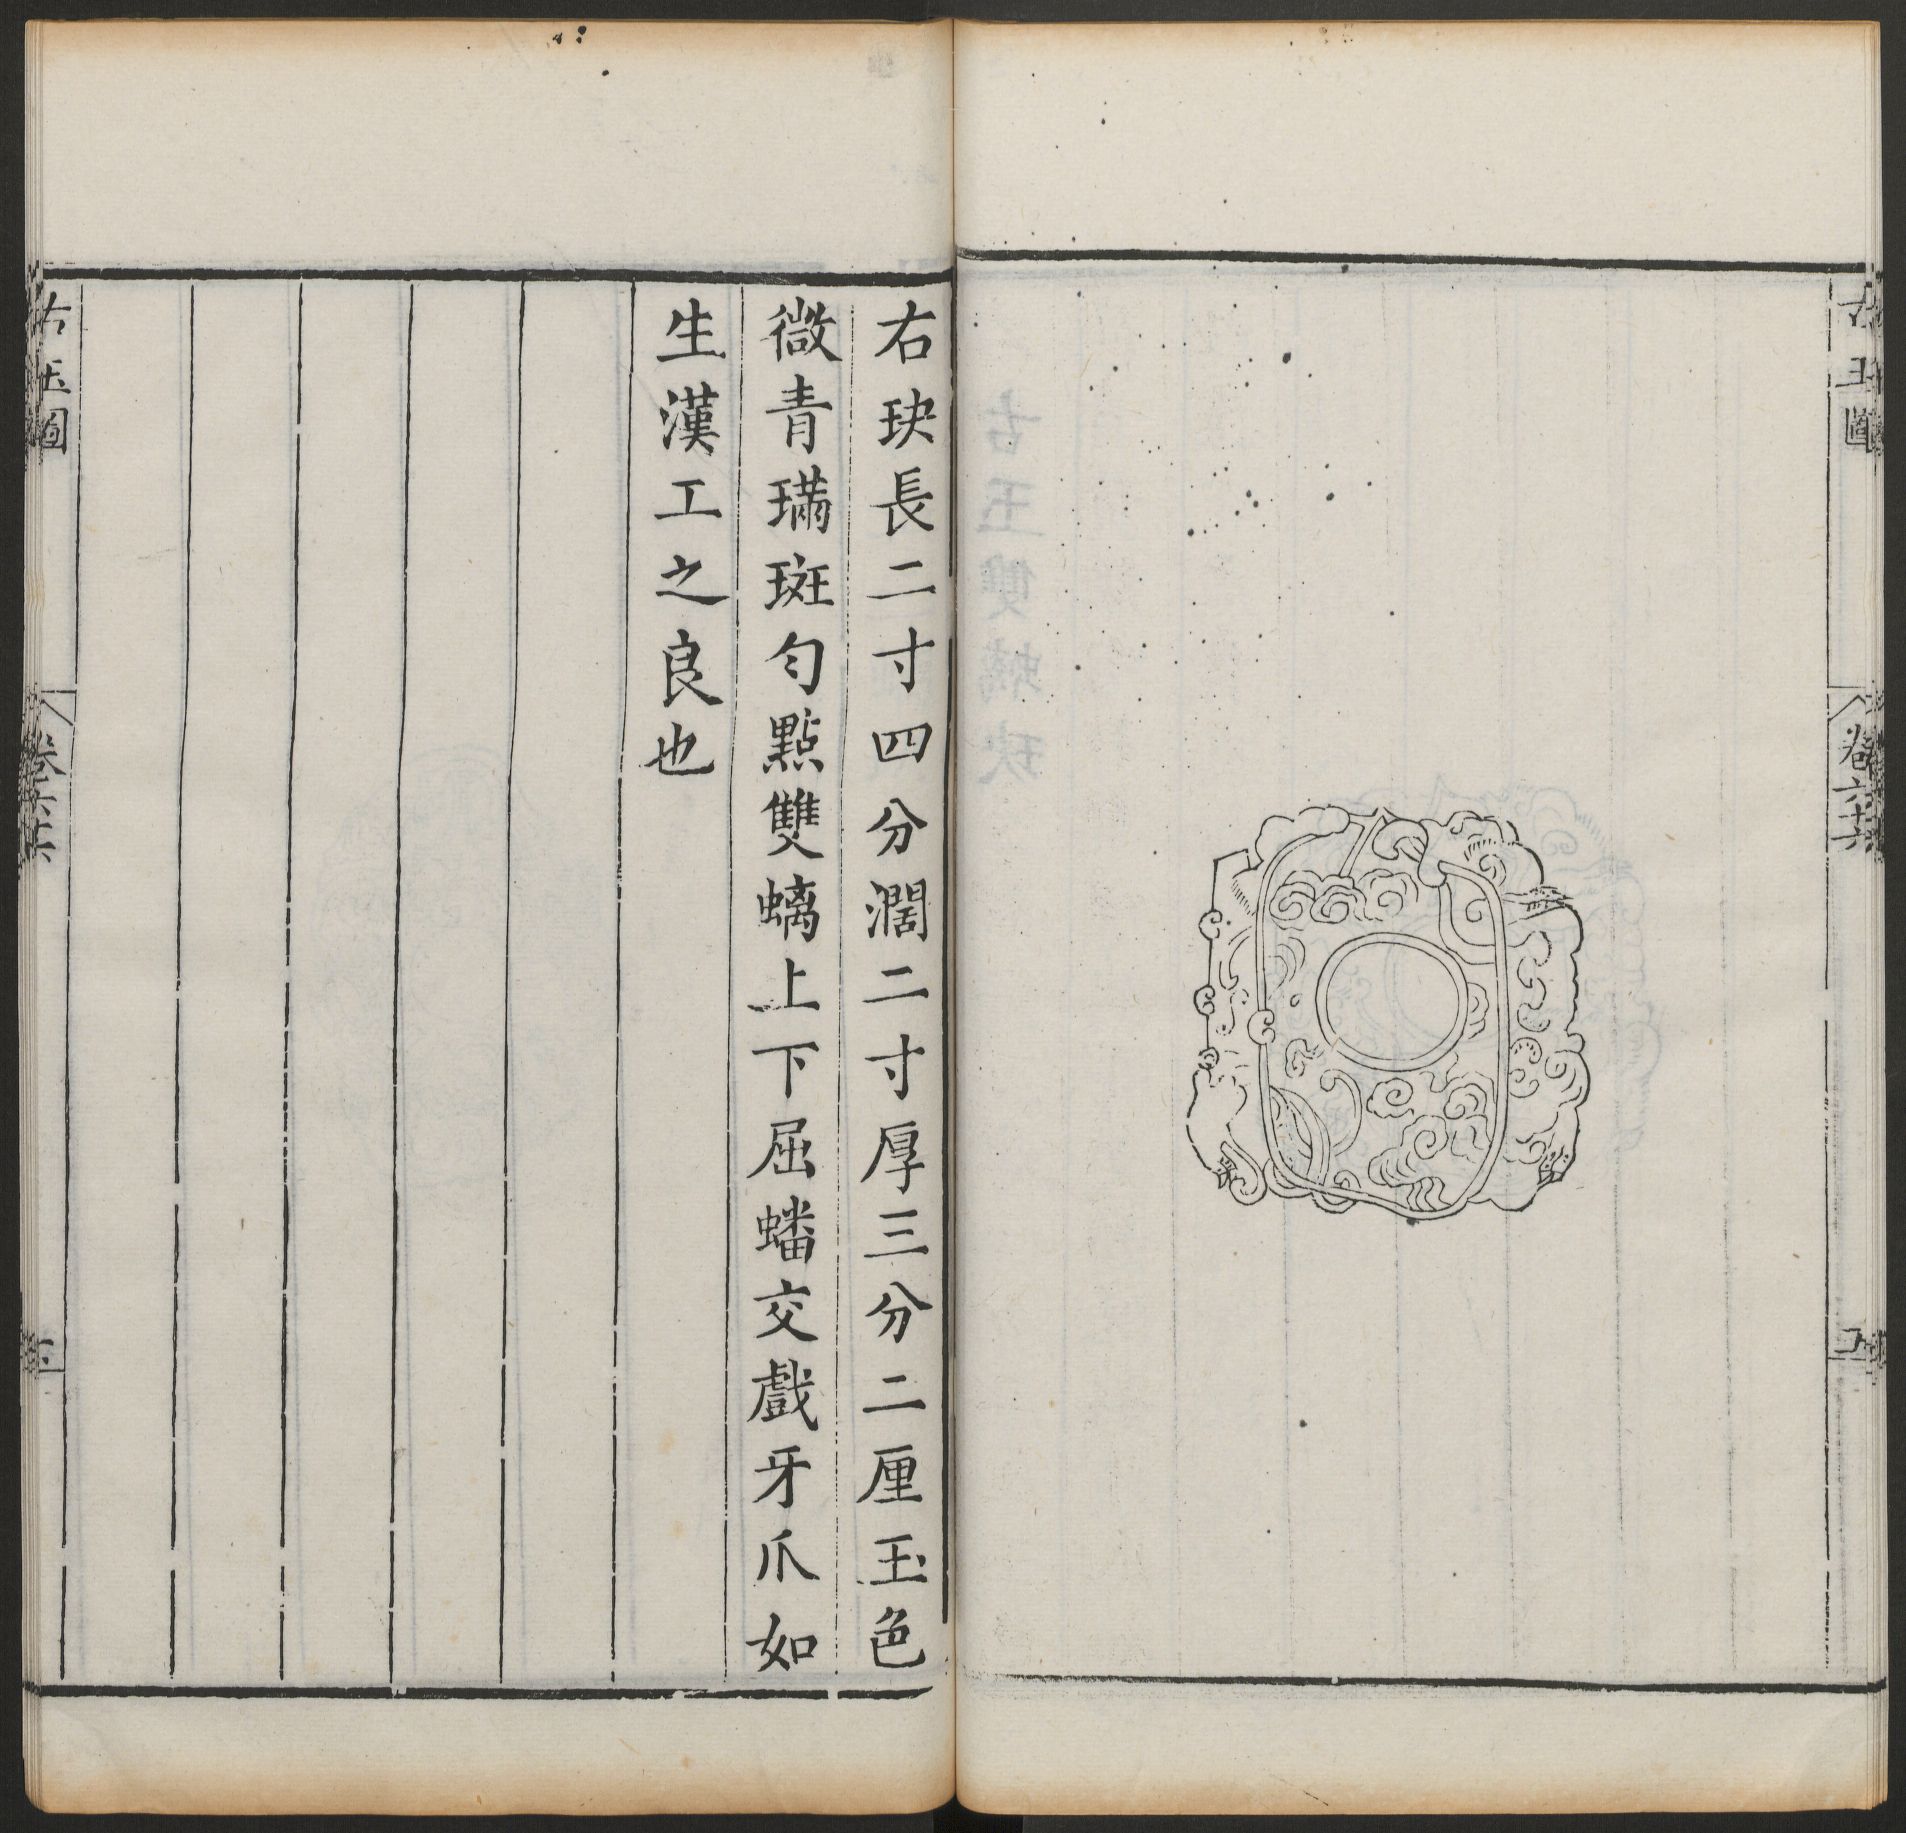 古玉圖
卷六十六
五
右玦長二寸四分濶二寸厚三分二厘玉色
微青璊斑勻點雙螭上下屈蟠交戲牙爪如
生漢工之良也
古玉圖
卷六十六